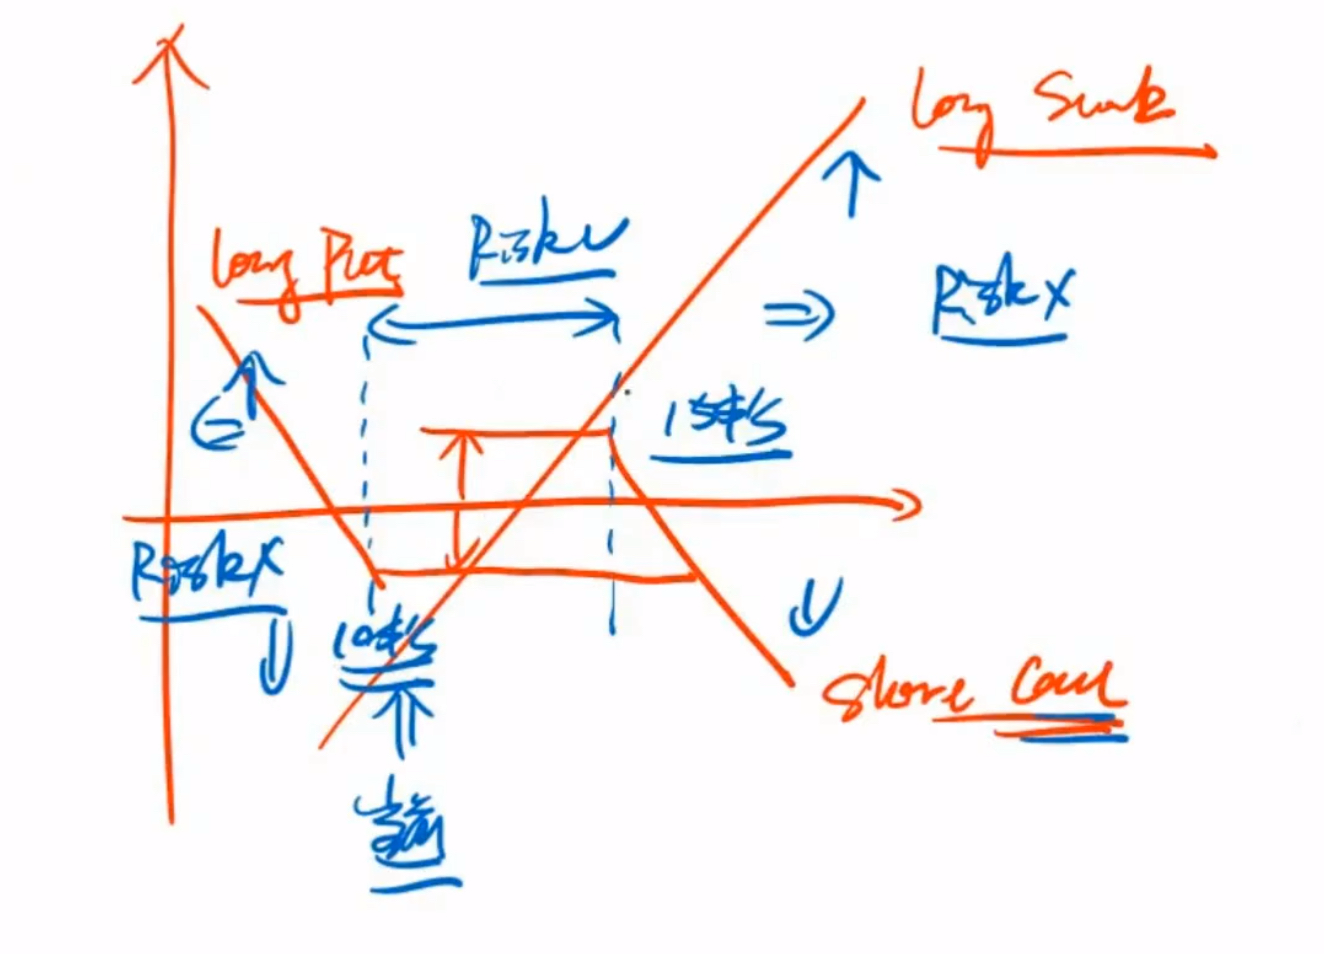 Long Stock
Long Put
Risk✓
Risk X
15$/S
Risk X
10$/S
Short Call